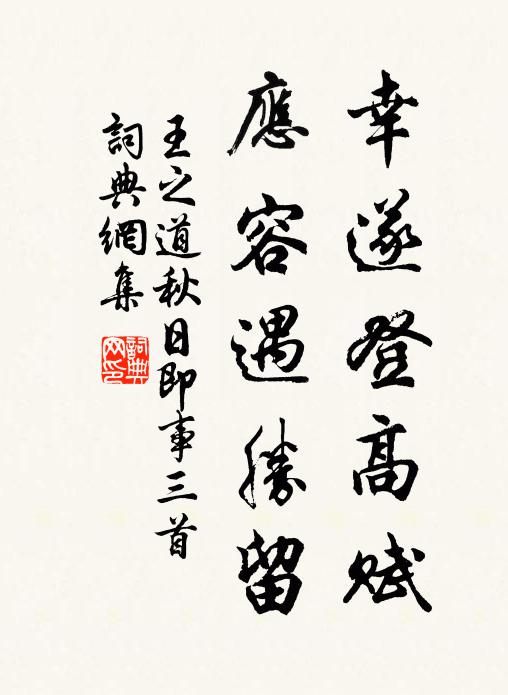 幸遂登高賦
應容遇勝留
王之道秋日即事三首
詞典網集
詞典網印